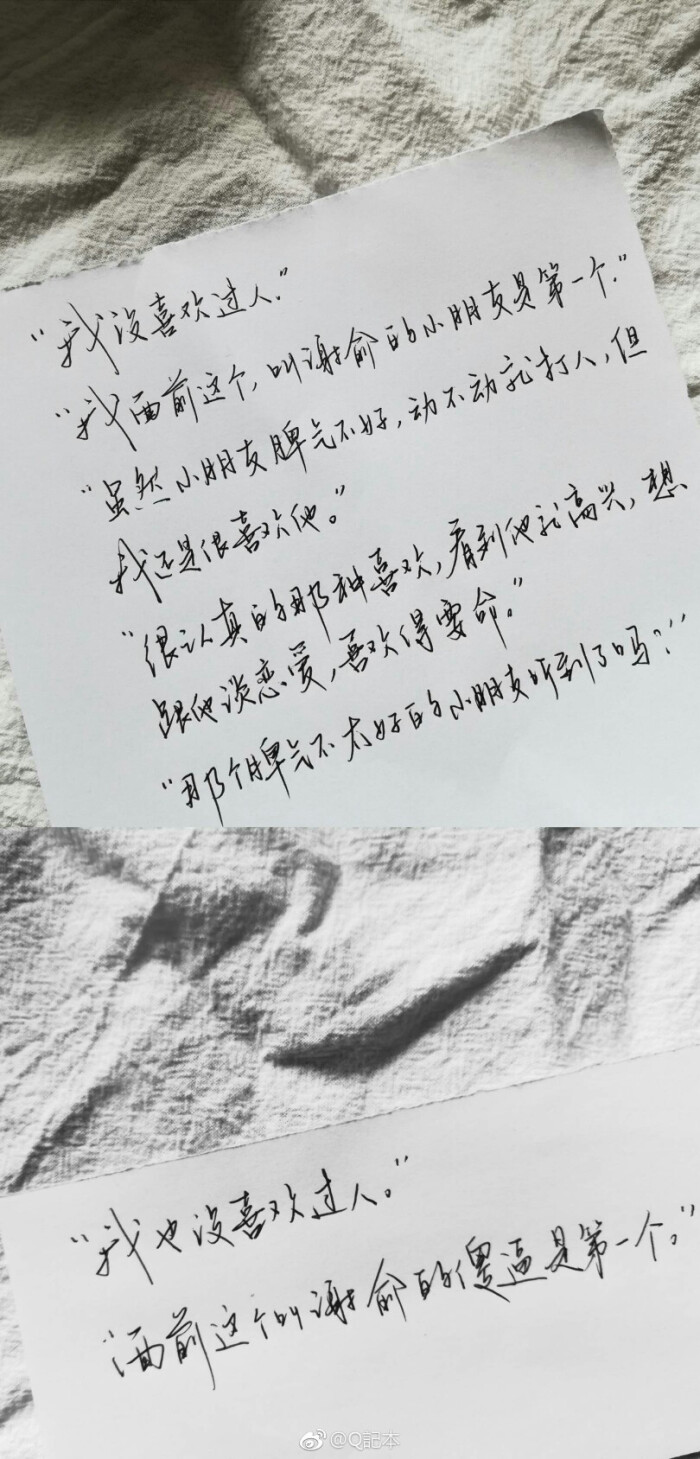 “我没喜欢过人。”
“我面前这个，叫谢俞的小朋友是第一个。”
“虽然小朋友脾气不好，动不动就打人，但
我还是很喜欢他。”
“很认真的那种喜欢，看到他就高兴，想
跟他谈恋爱，喜欢得要命。”
“那个脾气不太好的小朋友听到了吗？”
“我也没喜欢过人。”
“面前这个叫谢俞的傻逼是第一个。”
@Q記本